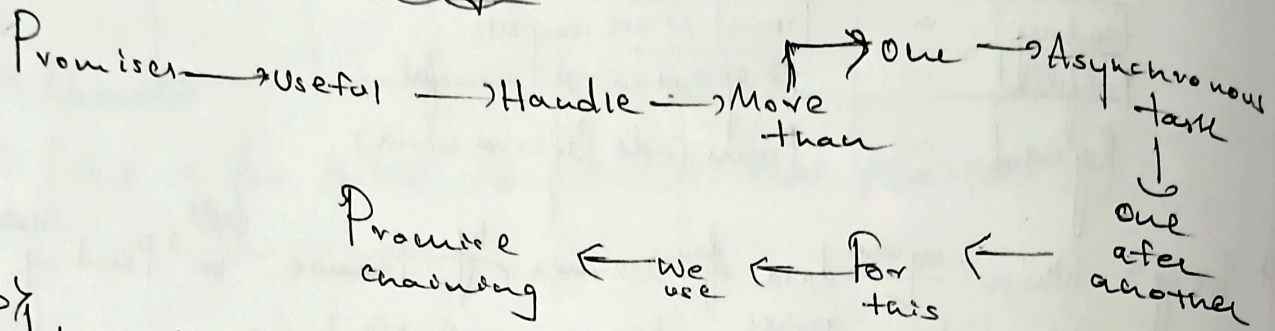 Promises → Useful → Handle → More than → One → Asynchronous task
↓
One afer another
← For this ← We use ← Promise chaining